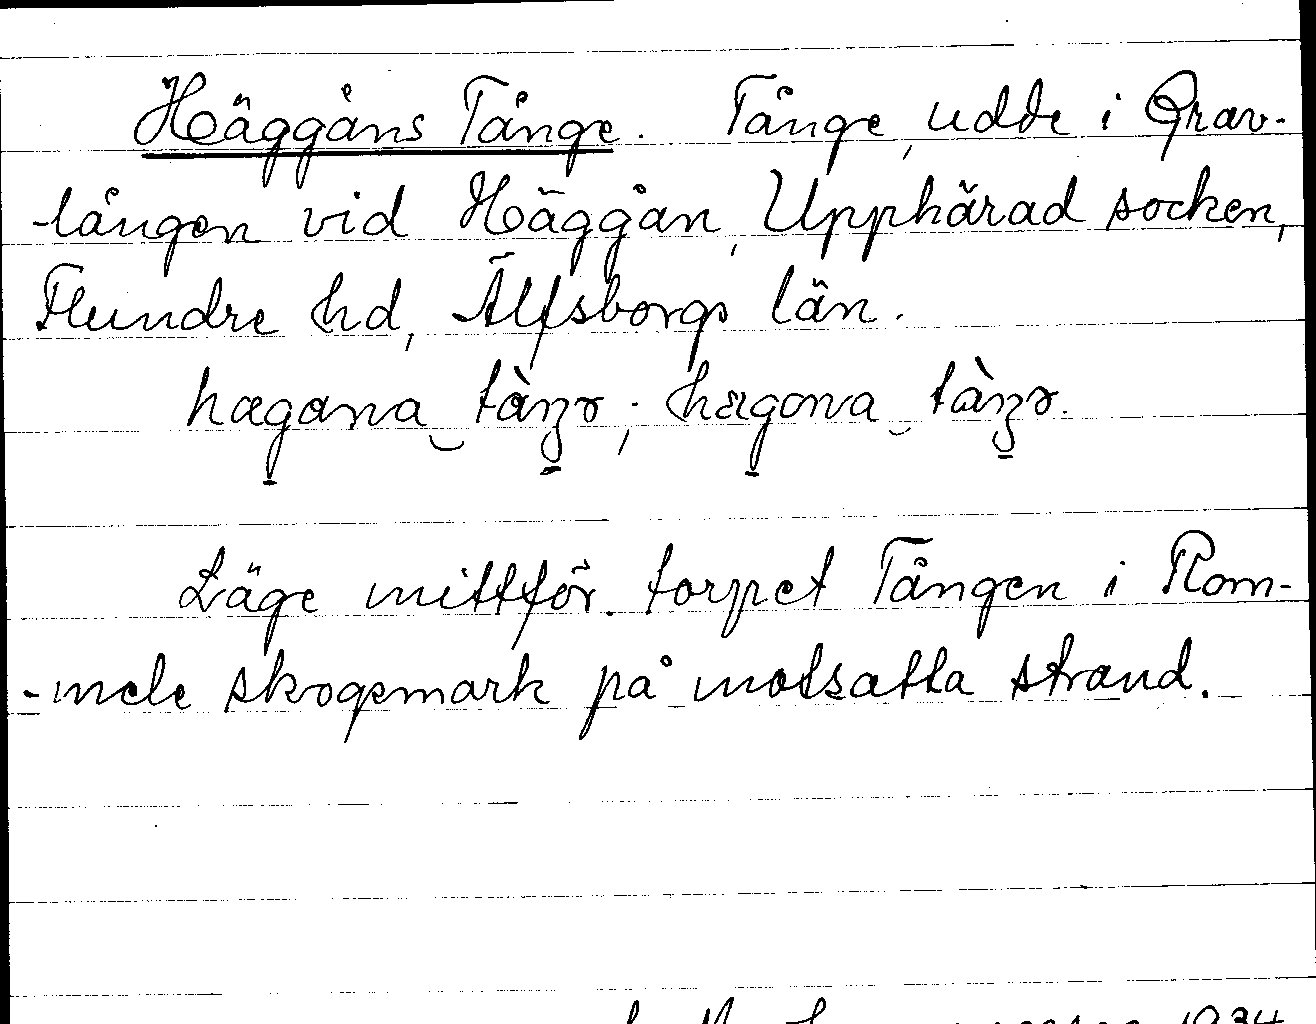 Häggåns Tånge. Tånge, udde i Grav-
-lången vid Häggån, Upphärad socken,
Flundre hd, Älfsborgs län.
hægana tàŋə; hægona tàŋə.
Läge mittför torpet Tången i Rom-
-mele skogsmark på motsatta strand.
1934